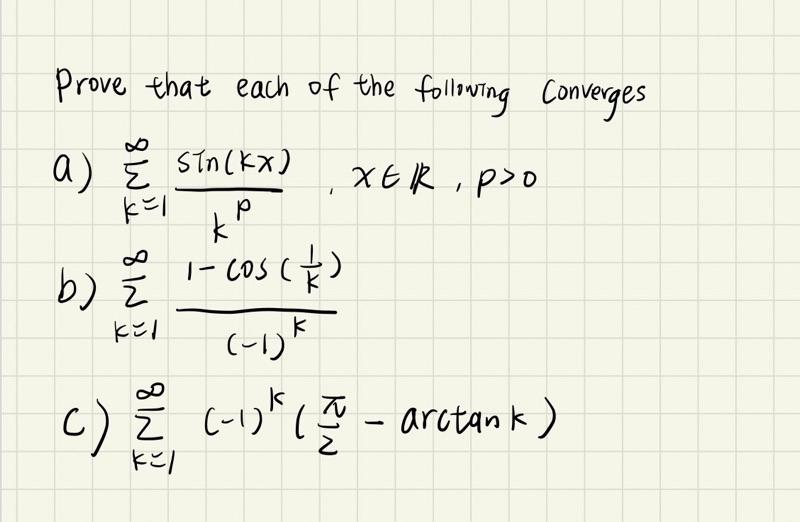 Prove that each of the following Converges
a) \sum_{k=1}^{\infty} \frac{sin(kx)}{k^p} , x∈ℝ, p>0
b) \sum_{k=1}^{\infty} \frac{1-cos(\frac{1}{k})}{(-1)^k}
c) \sum_{k=1}^{\infty} (-1)^k (\frac{π}{2} - arctan k)